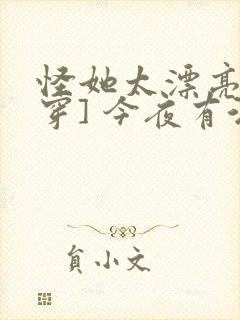 怪她太漂亮
穿]今夜有
貟小文